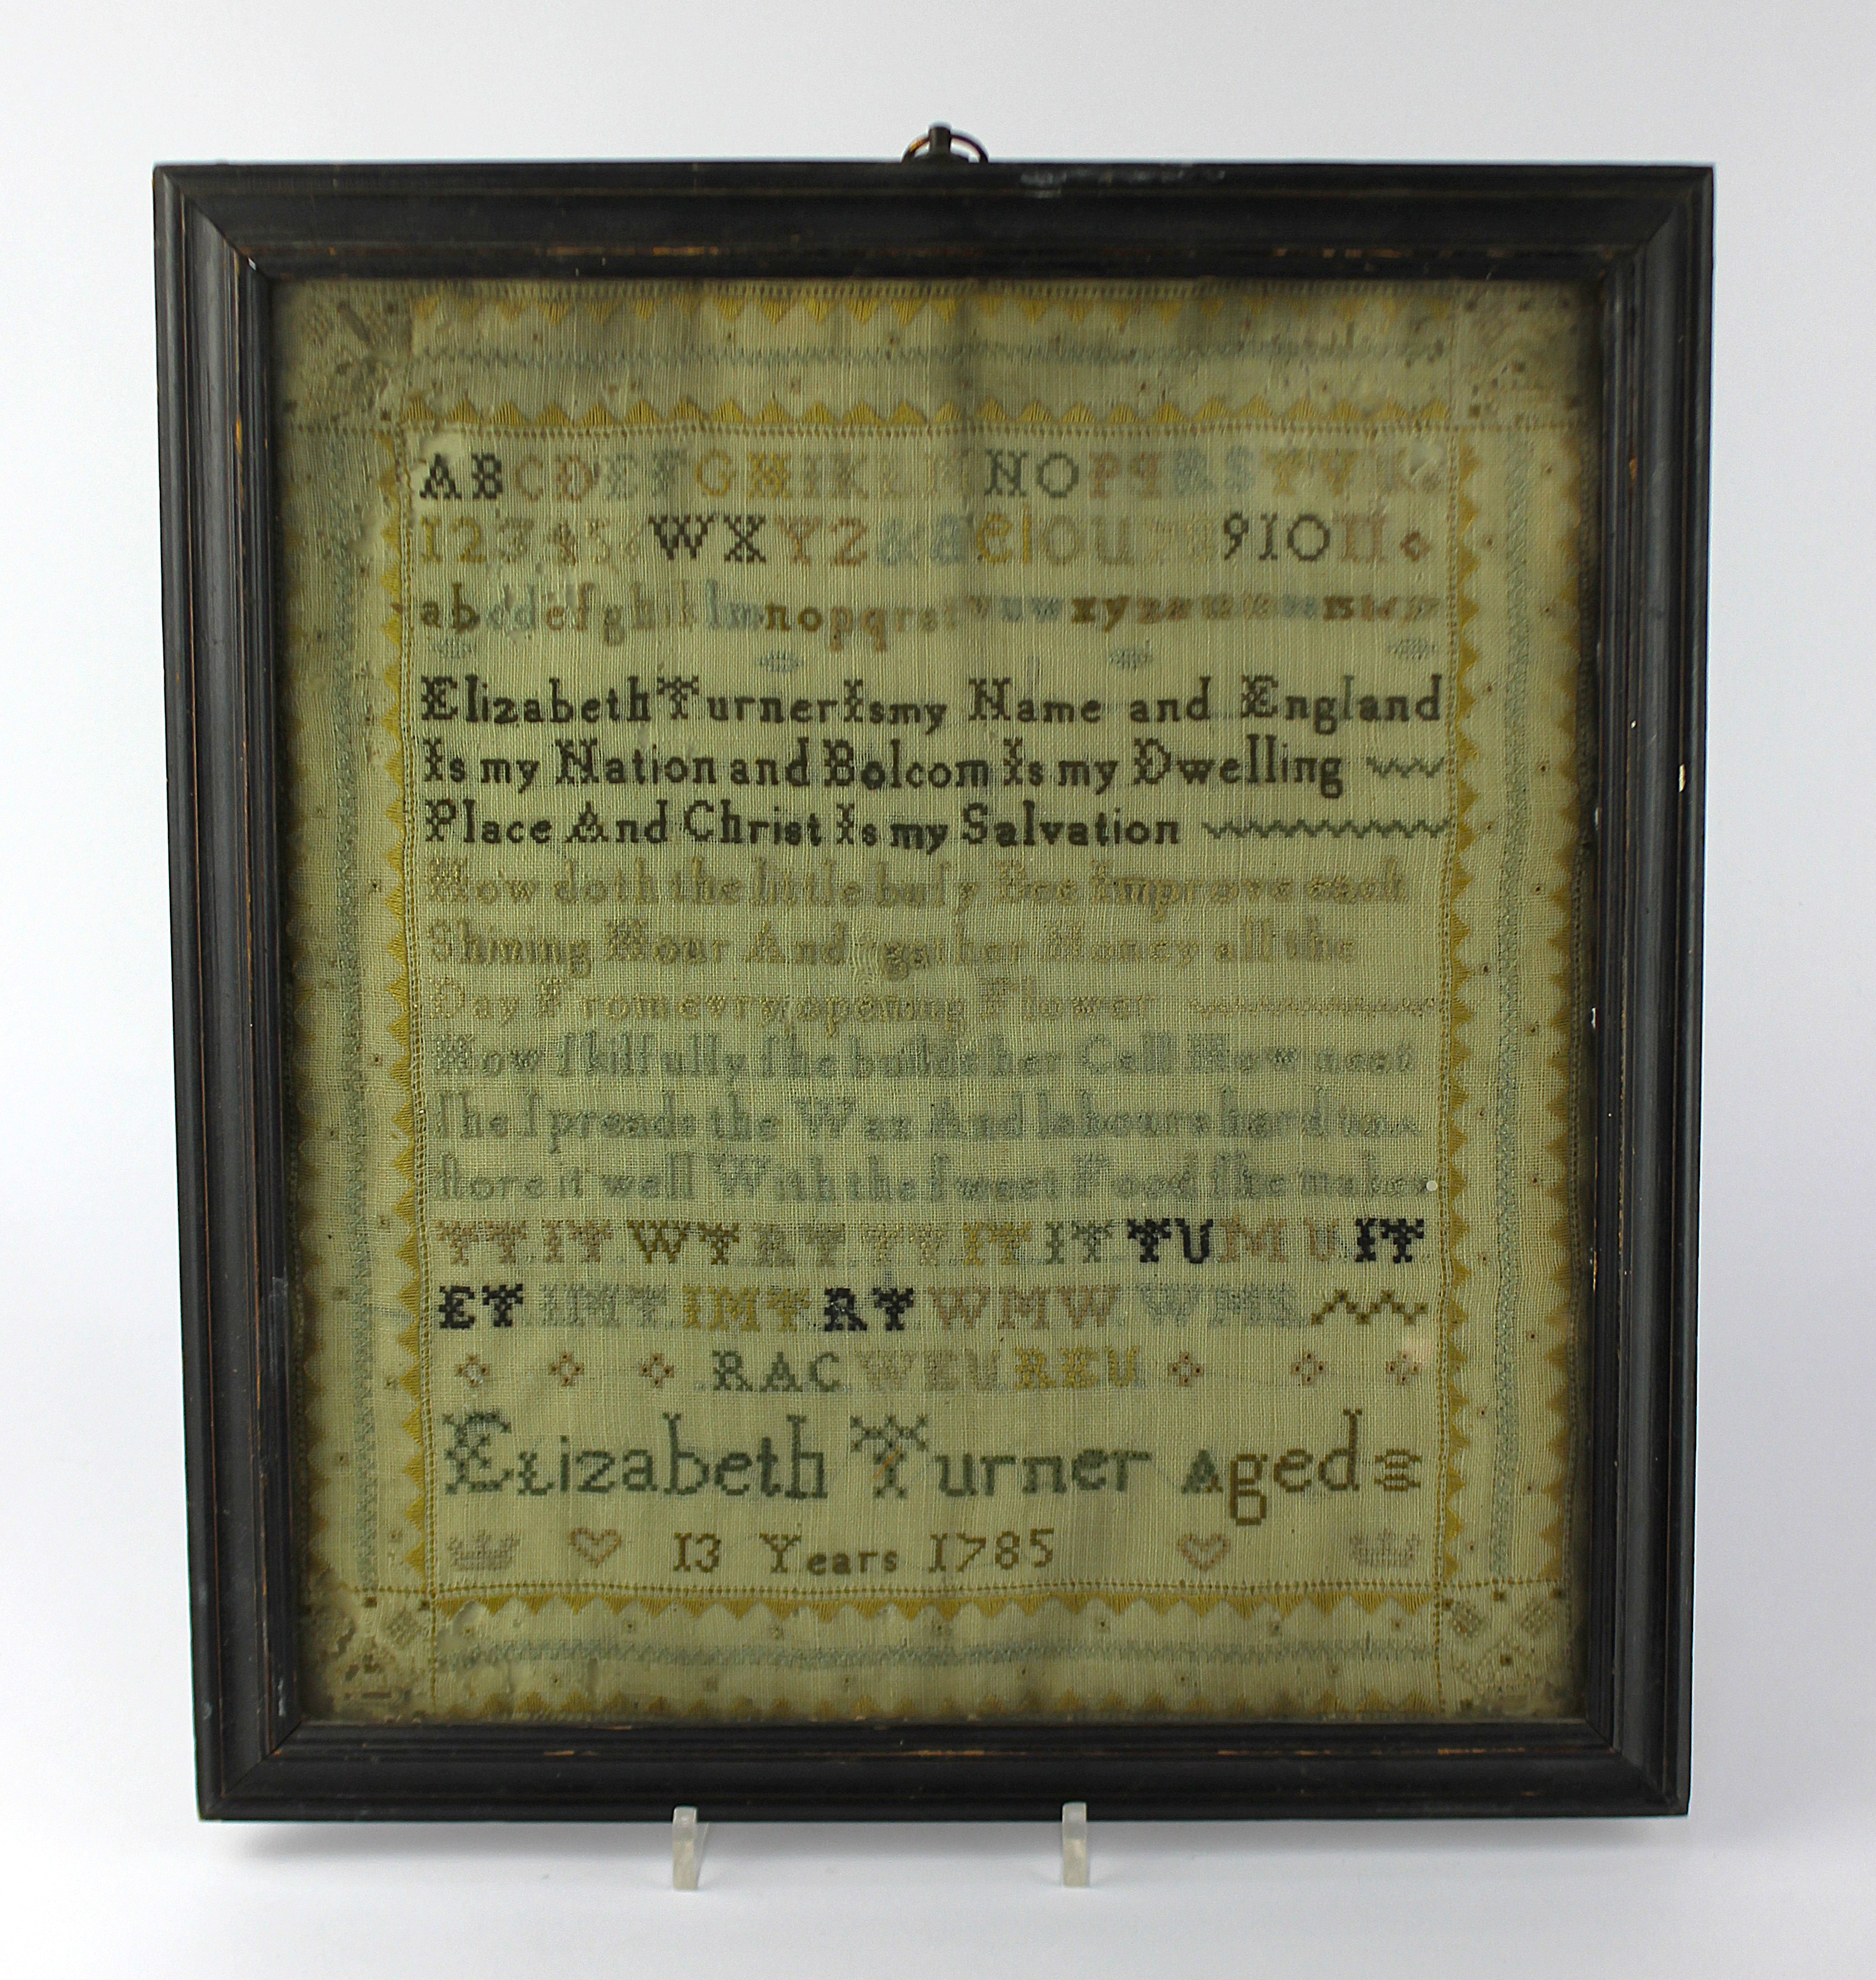 A B C D E F G H I K L M N O P Q R S T V U
1 2 3 4 5 6 W X Y Z & a e i o u 9 10 11
a b c d e f g h i k l m n o p q r s t v u w x y z
Elizabeth Turner Is my Name and England
Is my Nation and Bolcom Is my Dwelling
Place And Christ Is my Salvation
How doth the little buſy Bee Improve each
Shining Hour And gather Honey all the
Day From evry opening Flower
How ſkilfully ſhe builds her Cell How neat
ſhe ſpreads the Wax And labours hard to
ſtore it well With the ſweet Food ſhe makes
TT IT WT RT TT IT IT TU MU IT
ET IMT IMT RT WMW WMR
RAC WEU REU
Elizabeth Turner Aged
13 Years 1785